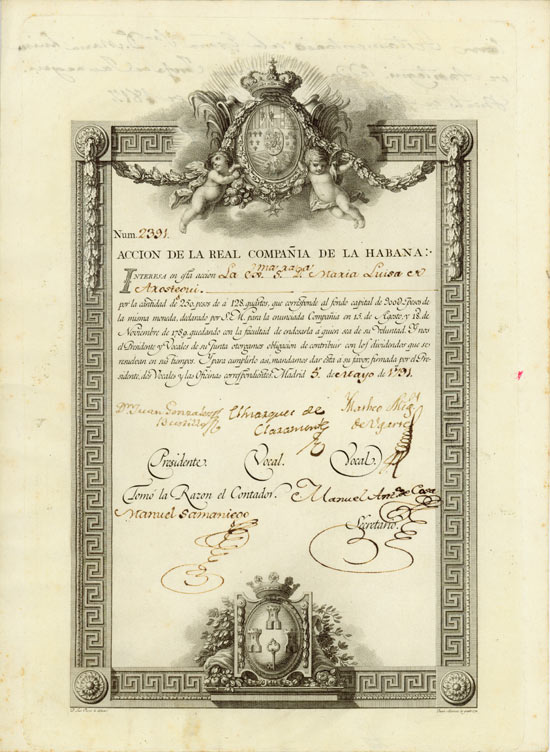 Num. 2391.
ACCION DE LA REAL COMPAÑIA DE LA HABANA:
INTERESA en esta accion La Sra. Da. Maria Luisa de
Arostegui.
por la cantidad de 250 pesos de à 128 quartos, que corresponde al fondo capital de pesos de
la misma moneda, declarado por S.M. para la enunciada Compañia en 15 de Agosto, y 18 de
Noviembre de 1789, quedando con la facultad de endosarla à quien sea de su Voluntad. Y nos
el Presidente y Vocales de su Junta otorgamos obligacion de contribuir con los dividendos que se
en sus tiempos. Y para cumplirlo asi, mandamos dar esta à su favor, firmada por el Pre-
sidente, dos Vocales, y las Oficinas correspondientes. Madrid 5. de Mayo de 1791.
Dn. Juan Gonzalez
Bustillo
El Marques de
Claramonte
Matheo Mig.
de Ugarte
Presidente. Vocal. Vocal.
Tomó la Razon el Contador. Manuel de Casa
Manuel Samaniego
Secretario.